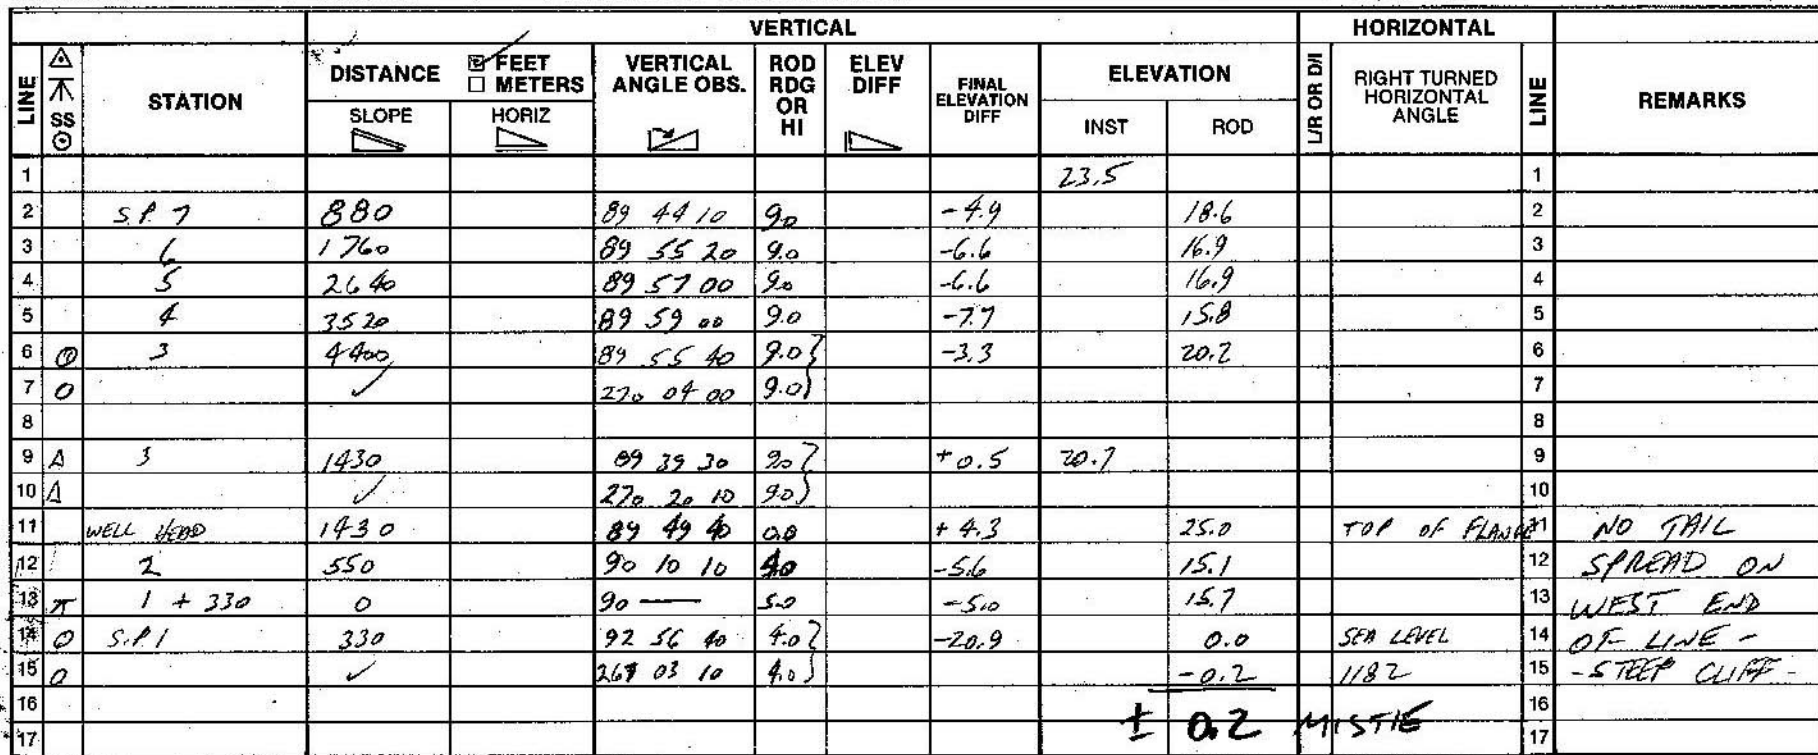 VERTICAL HORIZONTAL
LINE SS STATION DISTANCE FEET METERS SLOPE HORIZ VERTICAL ANGLE OBS. ROD RDG OR HI ELEV DIFF FINAL ELEVATION DIFF ELEVATION INST ROD L/R OR D/I RIGHT TURNED HORIZONTAL ANGLE LINE REMARKS
1 23.5 1
2 S.P. 7 880 89 44 10 9.0 -4.9 18.6 2
3 6 1760 89 55 20 9.0 -6.6 16.9 3
4 5 2640 89 57 00 9.0 -6.6 16.9 4
5 4 3520 89 59 00 9.0 -7.7 15.8 5
6 3 4400 89 55 40 9.0 -3.3 20.2 6
7 ✓ 270 04 00 9.0 7
8 8
9 3 1430 89 39 30 9.0 +0.5 20.7 9
10 ✓ 270 20 10 9.0 10
11 WELL HEAD 1430 89 49 40 0.0 +4.3 25.0 TOP OF FLANGE 11 NO TAIL
12 2 550 90 10 10 4.0 -5.6 15.1 12 SPREAD ON
13 1 + 330 0 90 — 5.0 -5.0 15.7 13 WEST END
14 S.P. 1 330 92 56 40 4.0 -20.9 0.0 SEA LEVEL 14 OF LINE -
15 ✓ 267 03 10 4.0 -0.2 1182 15 - STEEP CLIFF -
16 ± 0.2 MISTIE 16
17 17